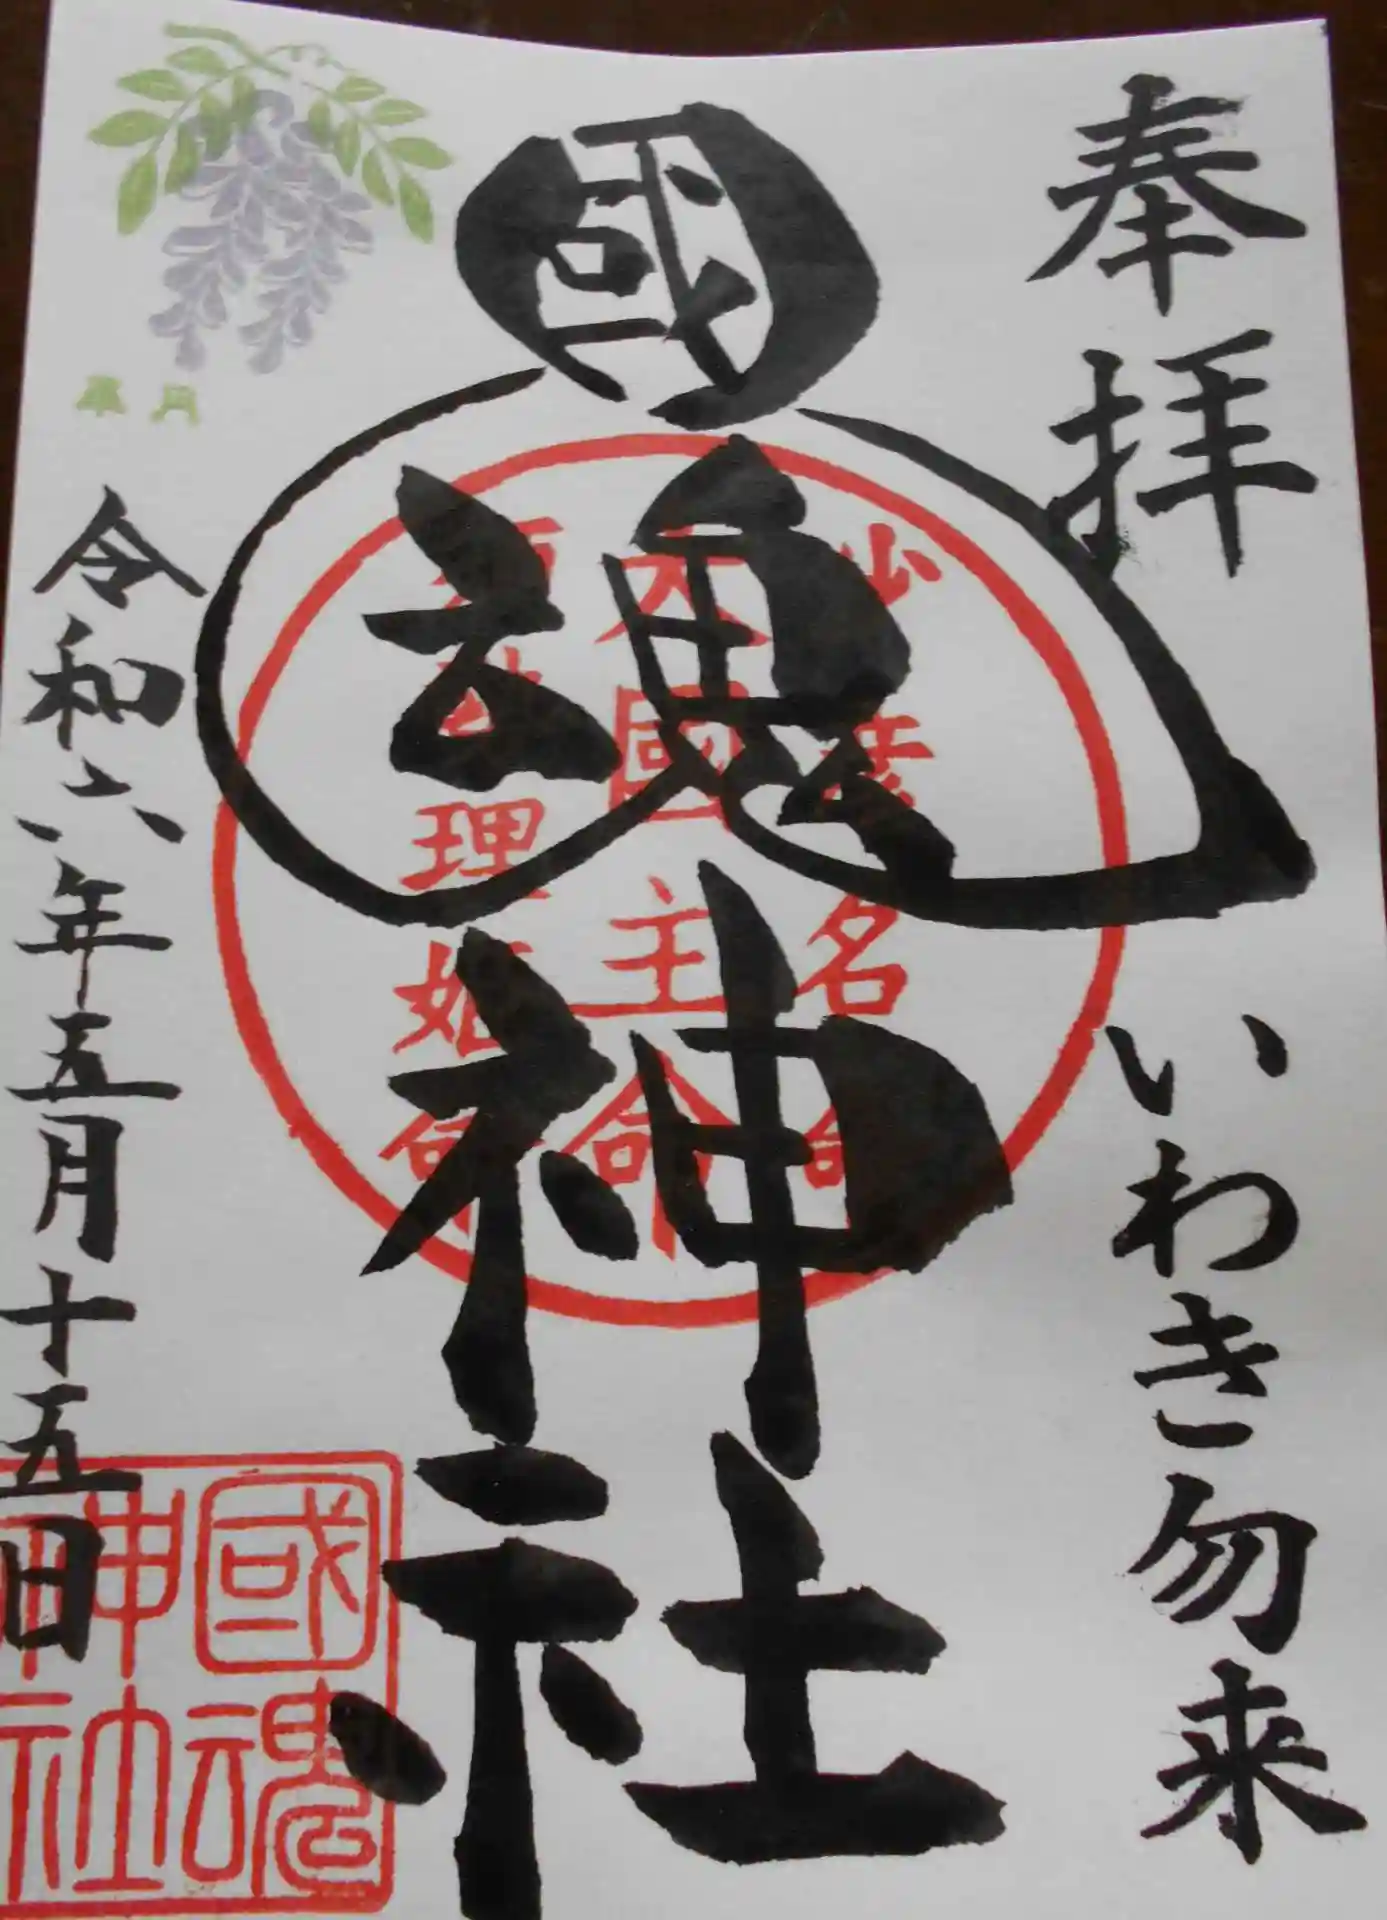 奉拝
いわき勿来
國魂神社
少彦名命
大國主命
須勢理姫命
令和六年五月十五日
國魂
神社
皐月